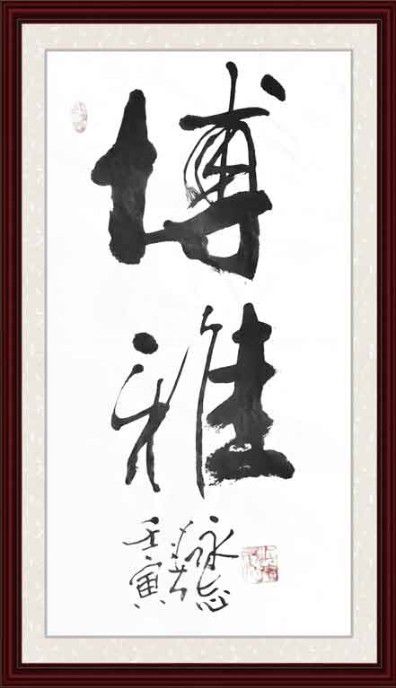 博雅
永志
壬寅